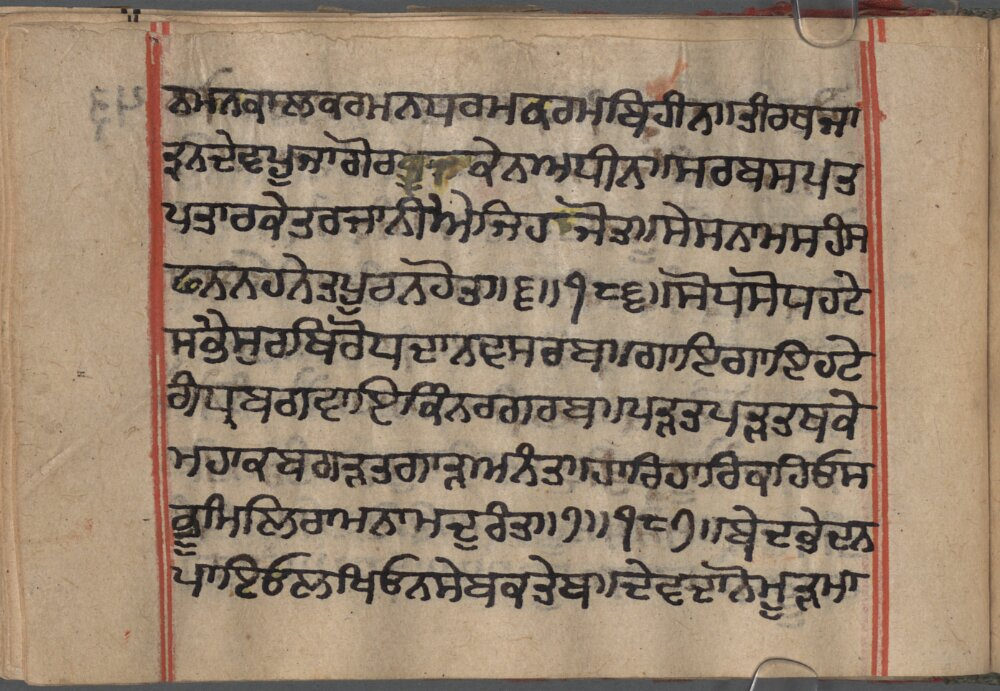 ਨਮਨਕਾਲਕਰਮਨਧਰਮਕਰਮਬਿਹੀਨ॥ਤੀਰਥਜਾ
ਤ੍ਰਨਦੇਵਪੂਜਾਗੋਰ ਕੇਨਅਧੀਨ॥ਸਰਬਸਪਤ
ਪਤਾਰਕੇਤਰਜਾਨੀਐਜਿਹ ਜੋਤ॥ਸੇਸਨਾਮਸਹੰਸ
ਫਨਨਹਿਨੇਤਪੂਰਨਹੋਤ॥੬॥੧੮੬॥ਸੋਧਸੋਧਹਟੇ
ਸਭੈਸੁਰਬਿਰੋਧਦਾਨਵਸਰਬ॥ਗਾਇਗਾਇਹਟੇ
ਗੰਧ੍ਰਬਗਵਾਇਕਿੰਨਰਗਰਬ॥ਪੜ੍ਹਤਪੜ੍ਹਤਥਕੇ
ਮਹਾਕਬਗੜ੍ਹਤਗਾੜ੍ਹਅਨੰਤ॥ਹਾਰਿਹਾਰਿਕਹਿਓਸ
ਭੂਮਿਲਿਰਾਮਨਾਮਦੁਰੰਤ॥੭॥੧੮੭॥ਬੇਦਭੇਦਨ
ਪਾਇਓਲਖਿਓਨਸੇਬਕਤੇਬ॥ਦੇਵਦਾਨੋਮੂੜ੍ਹਮਾ